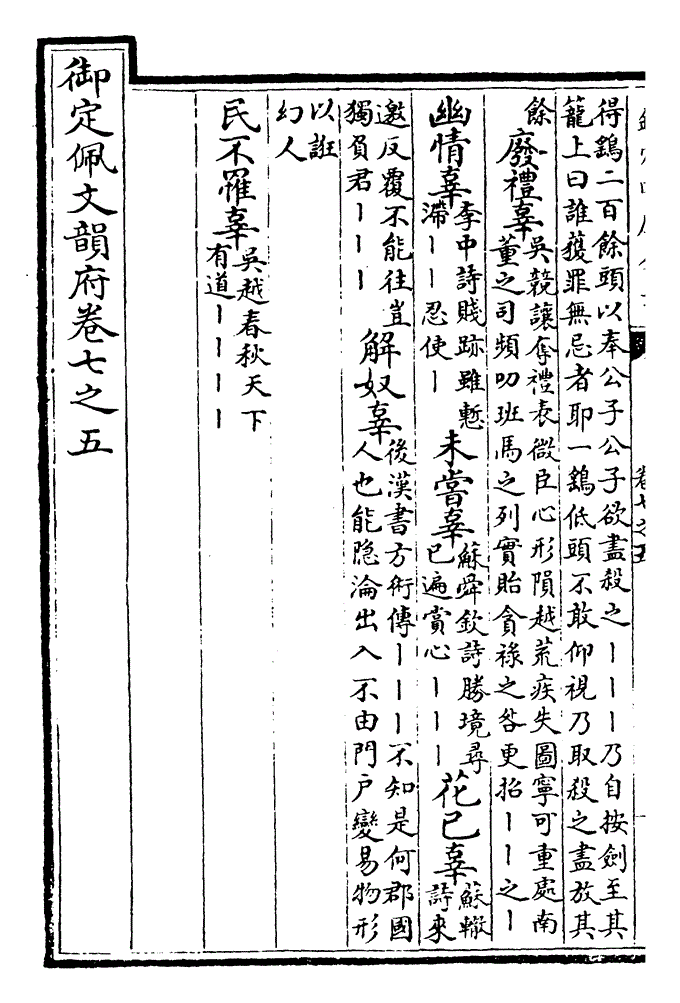 得鷂二百餘頭以奉公子公子欲盡殺之丨丨丨乃自按劍至其
籠上曰誰獲罪無忌者耶一鷂低頭不敢仰視乃取殺之盡放其
餘
廢禮辜
吳競讓奪禮表微臣心形隕越荒疾失圖寧可重處南
董之司頻叨班馬之列實貽貪祿之咎更招丨丨之丨
幽情辜
李中詩賤跡雖慙
滯丨丨忍使丨
未嘗辜
蘇舜欽詩勝境尋
已遍賞心丨丨丨
花已辜
蘇轍
詩來
邀反覆不能往豈
獨負君丨丨丨
解奴辜
後漢書方術傳丨丨丨不知是何郡國
人也能隐淪出入不由門戶變易物形
以誑
幻人
民不罹辜
吳越春秋天下
有道丨丨丨丨
御定佩文韻府卷七之五